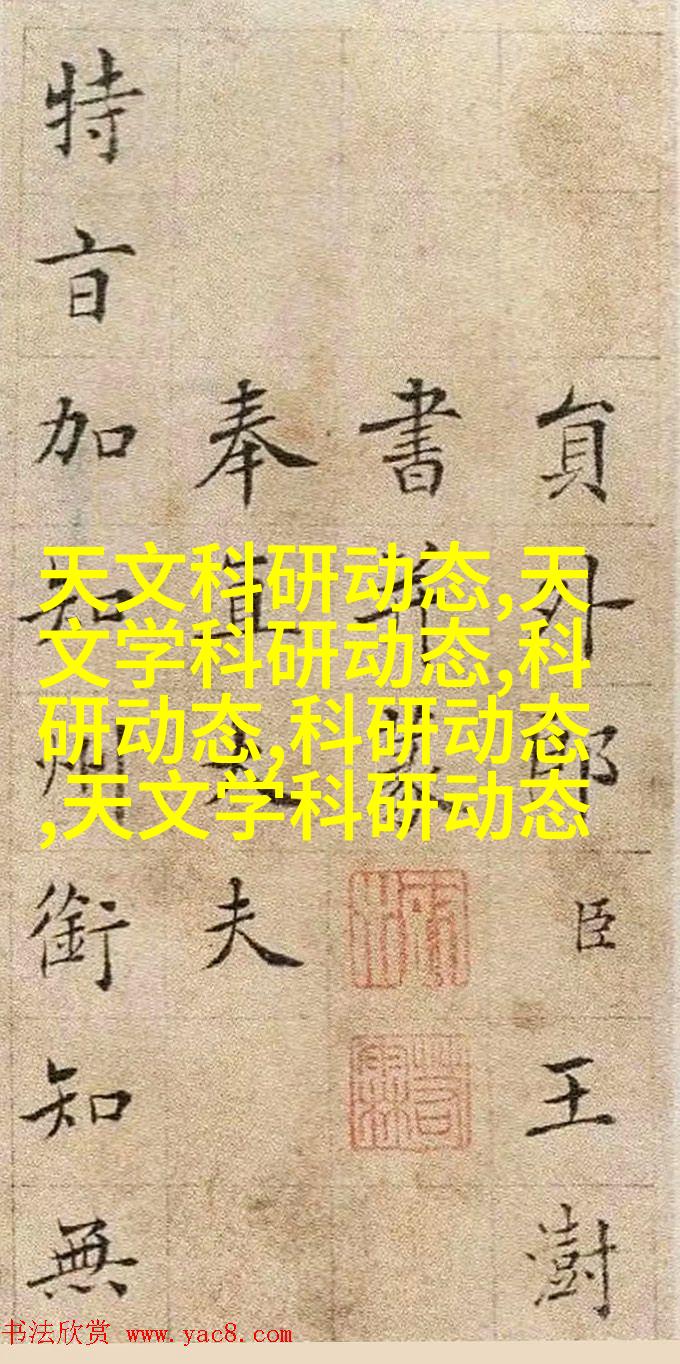 貟外郎臣王澍
書并篆
奉直大夫
特旨加知州銜知無
天文科研动态,天
文学科研动态,科
研动态,科研动态
,天文学科研动态
书法欣赏 www.yac8.com